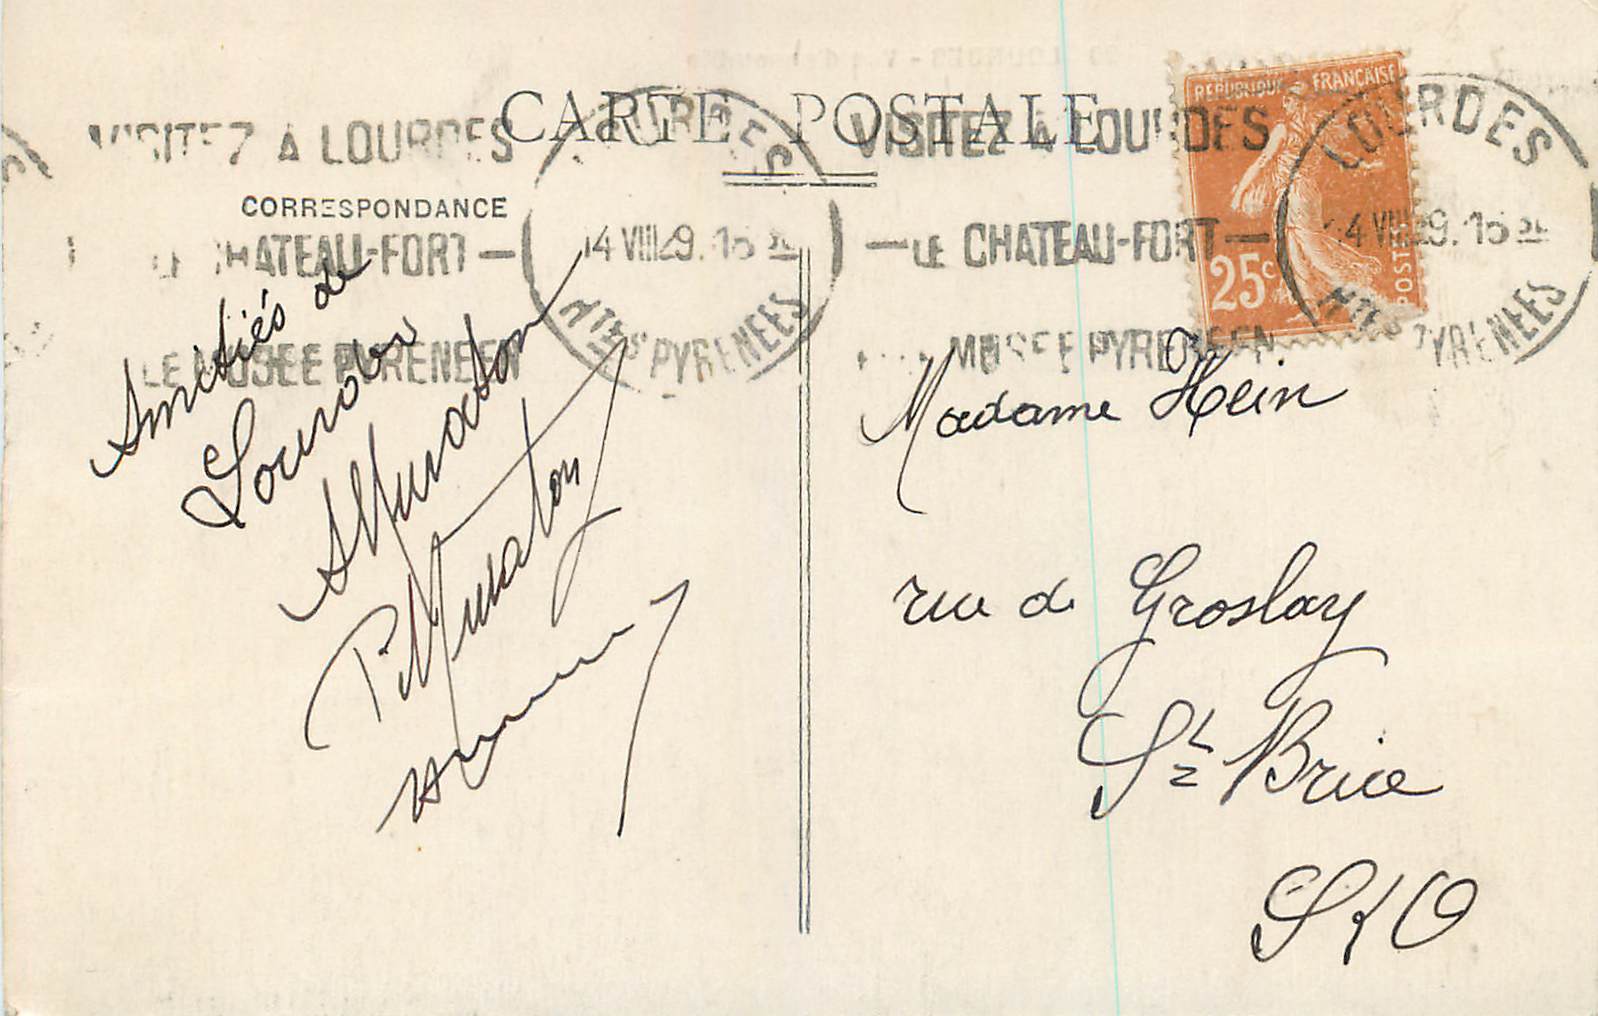 CARTE POSTALE
CORRESPONDANCE
VISITEZ A LOURDES
LE CHATEAU-FORT
LE MUSEE PYRENEEN
LOURDES
4 VIII 29. 16
Htes PYRENEES
VISITEZ A LOURDES
LE CHATEAU-FORT
MUSEE PYRENEEN
REPUBLIQUE FRANÇAISE
25c
POSTES
LOURDES
4 VIII 29. 16
Htes PYRENEES
Amitiés de
Lourdes
Madame Hein
rue de Groslay
St Brice
S & O